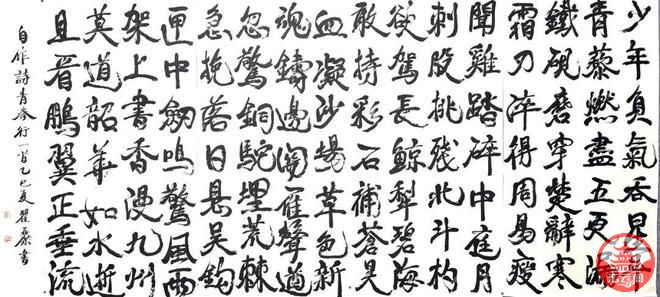 少年負氣吞
青藜燃盡五更
鐵硯磨穿楚辭寒
霜刀淬得周易瘦
聞雞踏碎中庭月
刺股挑殘北斗杓
欲駕長鯨犁碧海
敢持彩石補蒼昊
血凝沙場草色新
魂鑄邊關雁聲遒
忽驚銅駝埋荒棘
急挽落日懸吳鉤
匣中劍鳴驚風雨
架上書香漫九州
莫道韶華如水逝
且看鵬翼正垂流
自作詩青衿行一首乙巳夏瞿書